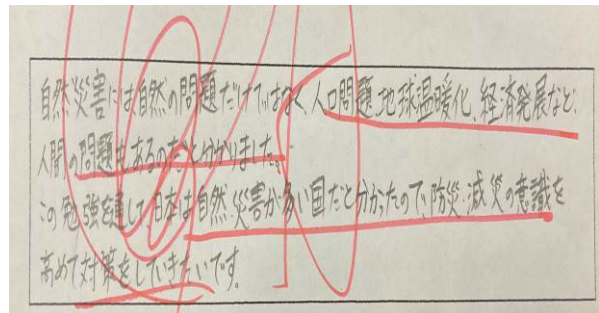 自然災害には自然の問題だけではなく、人口問題、地球温暖化、経済発展など、
人間の問題もあるのだと分かりました。
この勉強を通して日本は自然災害が多い国だと分かったので、防災・減災の意識を
高めて対策をしていきたいです。